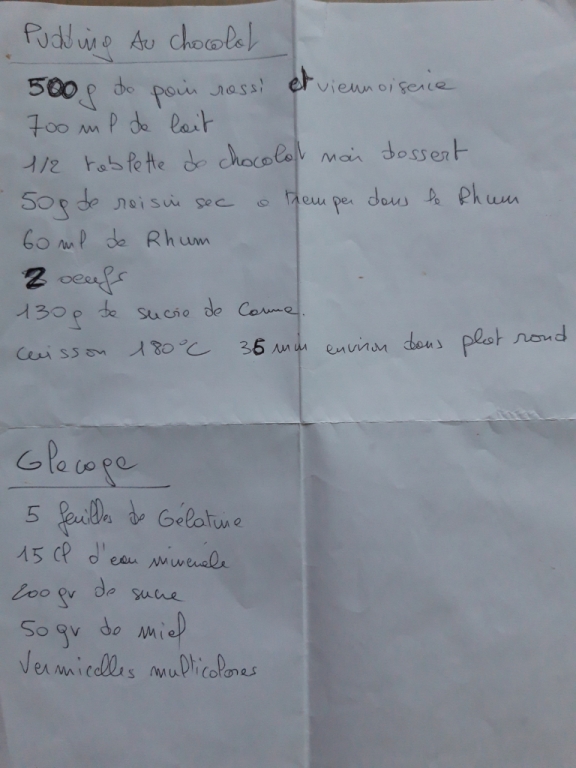 Pudding Au chocolat
500g de pain rassi et viennoiserie
700 ml de lait
1/2 tablette de chocolat noir dessert
50g de raisin sec a tremper dans le Rhum
60 ml de Rhum
2 oeufs
130g de sucre de Canne.
cuisson 180°C 35 min environ dans plat rond
Glacage
5 feuilles de Gélatine
15 Cl d'eau minérale
200gr de sucre
50 gr de miel
Vermicelles multicolores